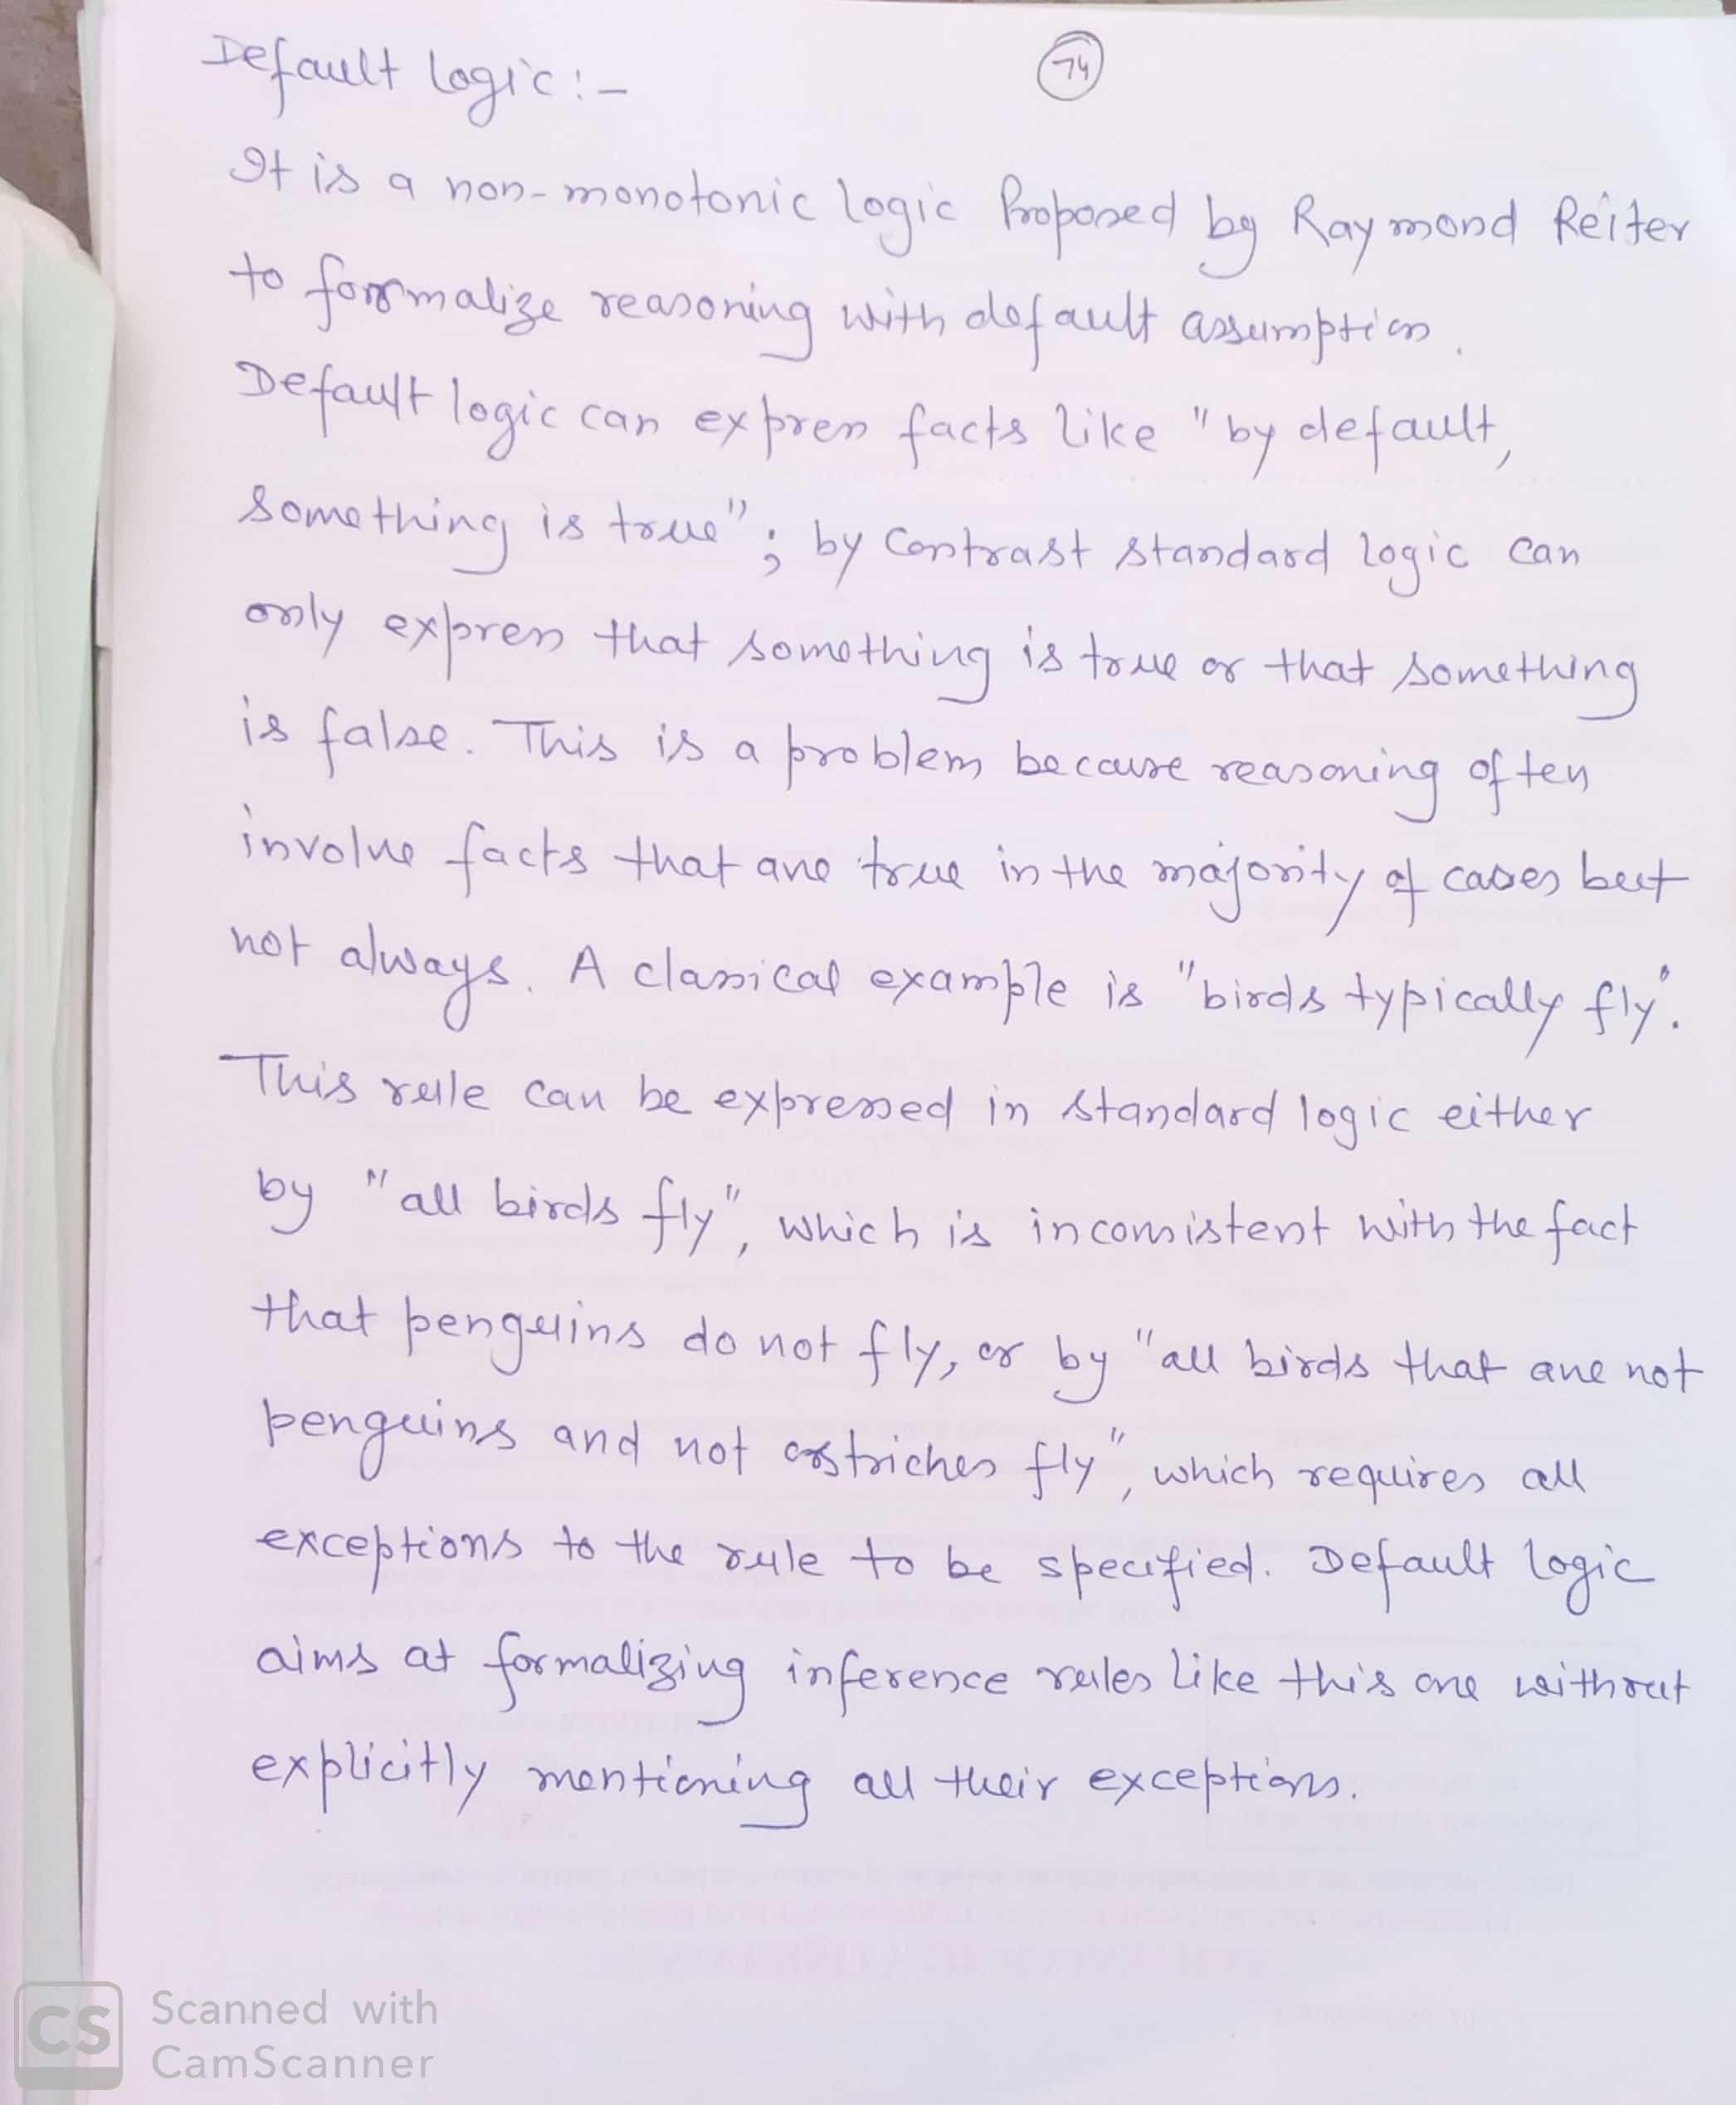 Default logic:-
74
It is a non-monotonic logic Proposed by Raymond Reiter
to formalize reasoning with default assumption.
Default logic can express facts like "by default,
something is true"; by contrast standard logic can
only express that something is true or that something
is false. This is a problem because reasoning often
involve facts that are true in the majority of cases but
not always. A classical example is "birds typically fly".
This rule can be expressed in standard logic either
by "all birds fly", which is inconsistent with the fact
that penguins do not fly, or by "all birds that are not
penguins and not ostriches fly", which requires all
exceptions to the rule to be specified. Default logic
aims at formalizing inference rules like this one without
explicitly mentioning all their exceptions.
CS Scanned with
CamScanner